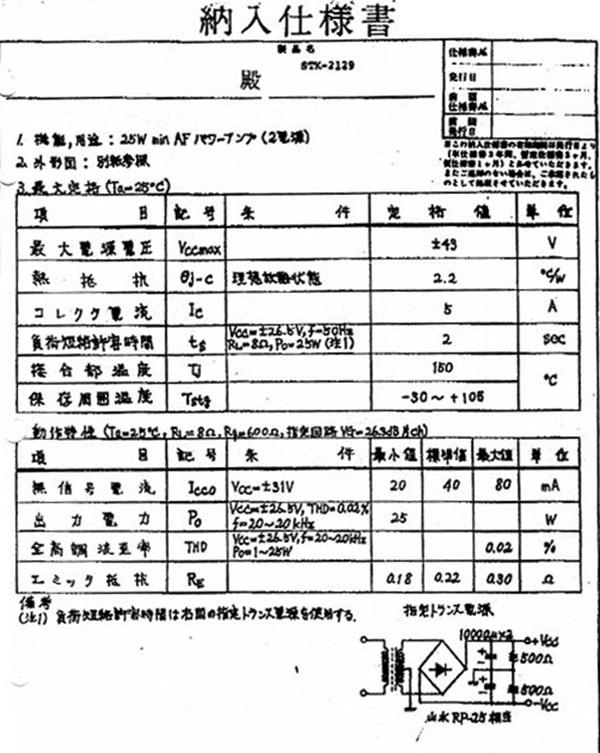 納入仕様書
製品名
STK-2129
殿
仕様書№
発行日
前 頭
仕様書№
発行日
※この納入仕様書の有効期間は発行日より
1. 機能,用途 : 25W min AF パワーアンプ (2電源)
2. 外形図 : 別紙参照
3. 最大定格 (Ta=25°C)
項 目 記号 条 件 定格値 単位
最大電源電圧 Vccmax ±43 V
熱抵抗 θj-c 理想放熱状態 2.2 °C/W
コレクタ電流 Ic 5 A
負荷短絡許容時間 ts Vcc=±26.5V, f=50Hz
RL=8Ω, Po=25W (注1) 2 sec
接合部温度 Tj 150 °C
保存周囲温度 Tstg -30 ~ +105
動作特性 (Ta=25°C, RL=8Ω, Rg=600Ω, 指定回路 VG=26.3dB
項 目 記号 条 件 最小値 標準値 最大値 単位
無信号電流 Icco Vcc=±31V 20 40 80 mA
出力電力 Po Vcc=±26.5V, THD=0.02%
f=20~20kHz 25 W
全高調波歪率 THD Vcc=±26.5V, f=20~20kHz
Po=1~25W 0.02 %
エミッタ抵抗 RE 0.18 0.22 0.30 Ω
備考
(注1) 負荷短絡許容時間は右図の指定トランス電源を使用する.
指定トランス電源
10000μ×2
+Vcc
500Ω
500Ω
-Vcc
山水RP-25相当